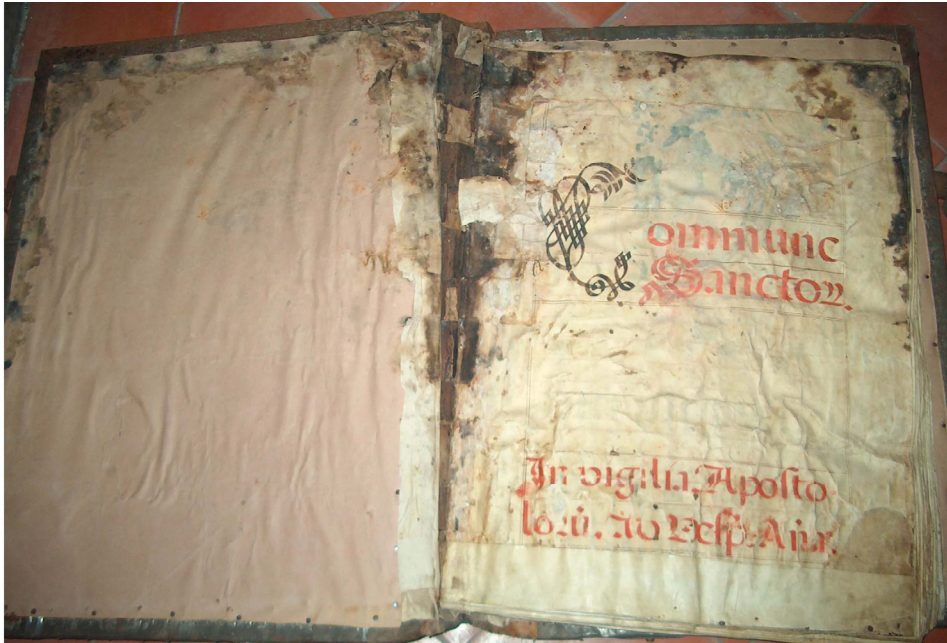 Commune
Sanctoꝝ.
In vigilia Aposto
loꝝ. Ad Vesp. Añ.